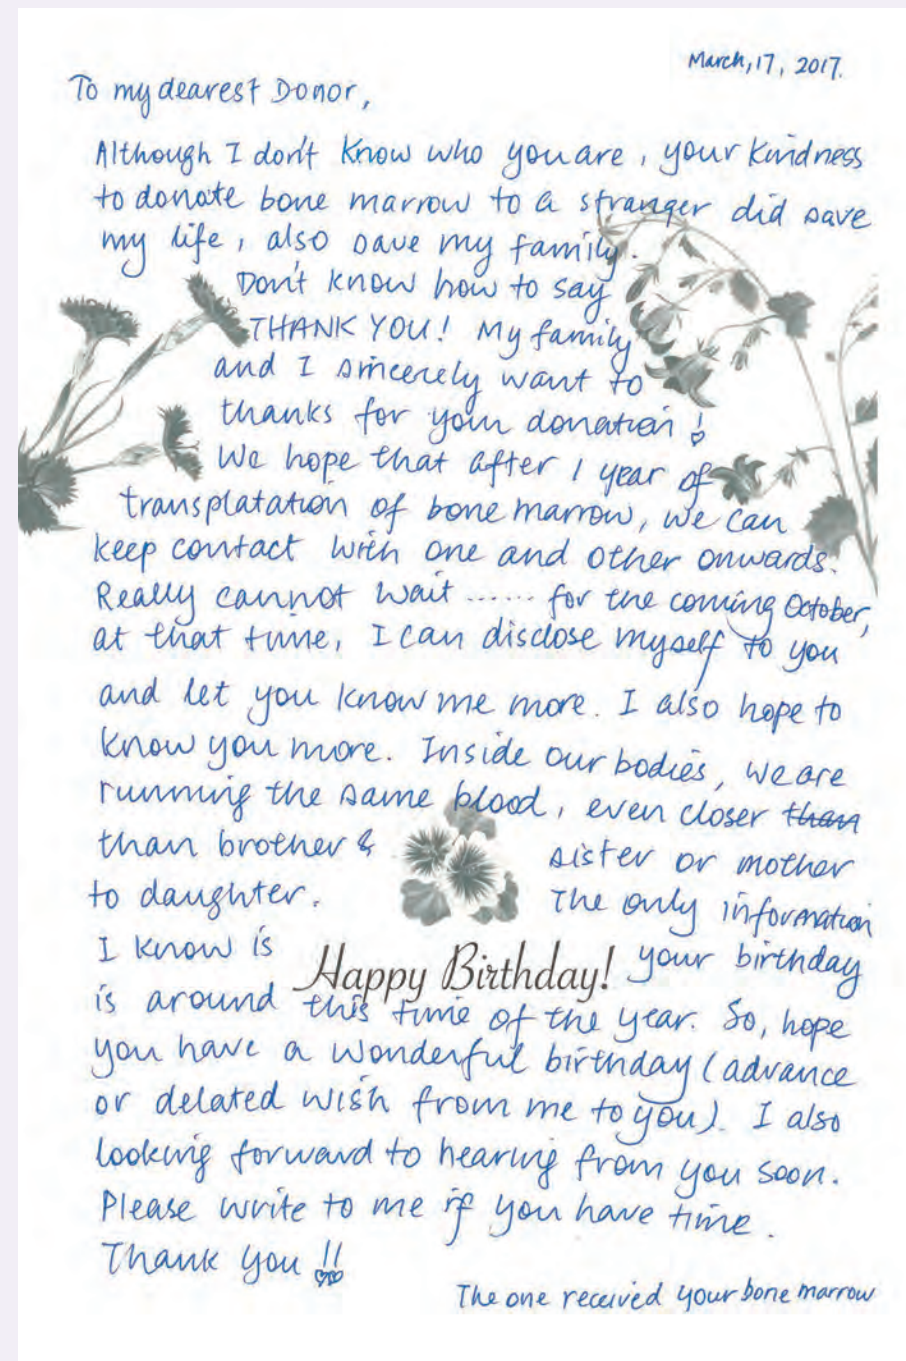 March, 17, 2017.
To my dearest Donor,
Although I don't know who you are, your kindness
to donate bone marrow to a stranger did save
my life, also save my family.
Don't know how to say
THANK YOU! My family
and I sincerely want to
thanks for your donation!
We hope that after 1 year of
transplatation of bone marrow, we can
keep contact with one and other onwards.
Really cannot wait ...... for the coming October,
at that time, I can disclose myself to you
and let you know me more. I also hope to
know you more. Inside our bodies, we are
running the same blood, even closer than
than brother & sister or mother
to daughter. The only information
I know is Happy Birthday! your birthday
is around this time of the year. So, hope
you have a wonderful birthday (advance
or delated wish from me to you). I also
looking forward to hearing from you soon.
Please write to me if you have time.
Thank you !!
The one received your bone marrow